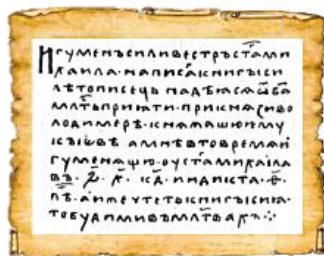 Игуменъсиливестръста҃ми
хаила·написа́хкнигыси
лѣтописець надѣꙗсѧѿба҃
млт҃ьприꙗти·прикнѧзиво
лодимерѣ·кнѧжащюѥму
кыѥвѣ амнѣвтовремѧи
гуменѧщю·оуст҃амихаила
въ·҂ѕ҃·х҃·к҃д·индикта·ѳ҃·
лѣ·аижечтетькнигысиꙗ·
тобудимивъмлт҃вахъ⁘